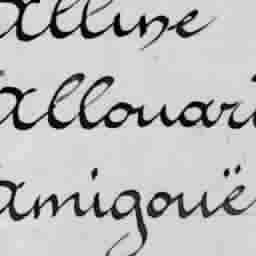 Alline
Allouari
Amigouë